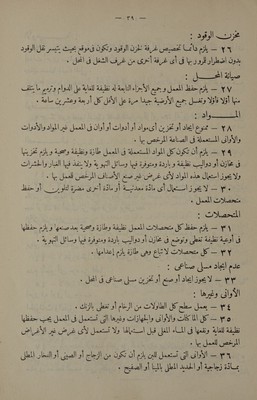 — ٣٩ —
مخزن الوقود :
٢٦ — يلزم دائماً تخصيص غرفة لخزن الوقود وتكون فى موقع بحيث يتيسر نقل الوقود
بدون اضطرار للمرور بها فى أى غرفة أخرى من غرف الشغل فى المحل .
صيانة المحل :
٢٧ — يلزم حفظ المعمل وجميع الأجزاء التابعة له نظيفة للغاية على الدوام وترميم ما يتلف
منها أولا فأولا وتغسل جميع الأرضية جيدا مرة على الأقل كل أربعة وعشرين ساعة .
المواد :
٢٨ — ممنوع إيجاد أو تخزين أى مواد أو أدوات أو أوان فى المعمل غير المواد والأدوات
والأوانى المستعملة فى الصناعة المرخص بها .
٢٩ — يلزم أن تكون كل المواد المستعملة فى المعمل طازة ونظيفة وصحية ويلزم تخزينها
فى مخازن أو دواليب نظيفة وباردة ومتوفرة فيها وسائل التهوية ولا ينفذ فيها الغبار والحشرات
ولا يجوز استعمال هذه المواد لأى غرض غير صنع الأصناف المرخص بها للمعمل .
٣٠ — لا يجوز استعمال أى مادة معدنية أو مادة أخرى مضرة لتلوين أو حفظ
المتحصلات .
المتحصلات :
٣١ — يلزم حفظ كل متحصلات المعمل نظيفة وطازة وصحية بعد صنعها ويلزم حفظها
فى أوعية نظيفة تغطى وتوضع فى مخازن أو دواليب باردة ومتوفرة فيها وسائل التهوية .
٣٢ — كل متحصلات لا تباع وهى طازة يلزم إعدامها .
عدم ايجاد مسلى صناعى :
٣٣ — لا يجوز إيجاد أو صنع أو تخزين مسلى صناعى فى المحل .
الأوانى وغيرها :
٣٤ — يعمل سطح كل الطاولات من الرخام أو تغطى بالزنك .
٣٥ — كل الماكنات والأوانى والجهازات وغيرها التى تستعمل فى المعمل يجب حفظها
نظيفة للغاية ونقعها فى الماء المغلى قبل استعمالها ولا تستعمل لأى غرض غير الأغراض
المرخص للعمل بها .
٣٦ — الأوانى التى تستعمل للبن يلزم أن تكون من الزجاج أو الصينى أو الفخار المطلى
بمادة زجاجية أو الحديد المطلى بالمينا أو الصفيح .